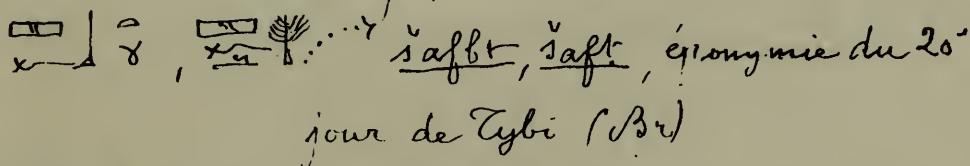 šafbt, šaft, éponymie du 20ᵉ
jour de Tybi (Br)